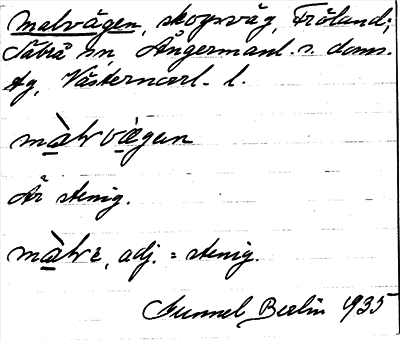 Malvägen, skogsväg, Fröland;
Säbrå sn, Ångermanl. s. doms.
tg, Västernorrl. l.
màlvæ̀gen
Är stenig.
màlvɛ, adj. = stenig.
Gunnel Berlin 1935